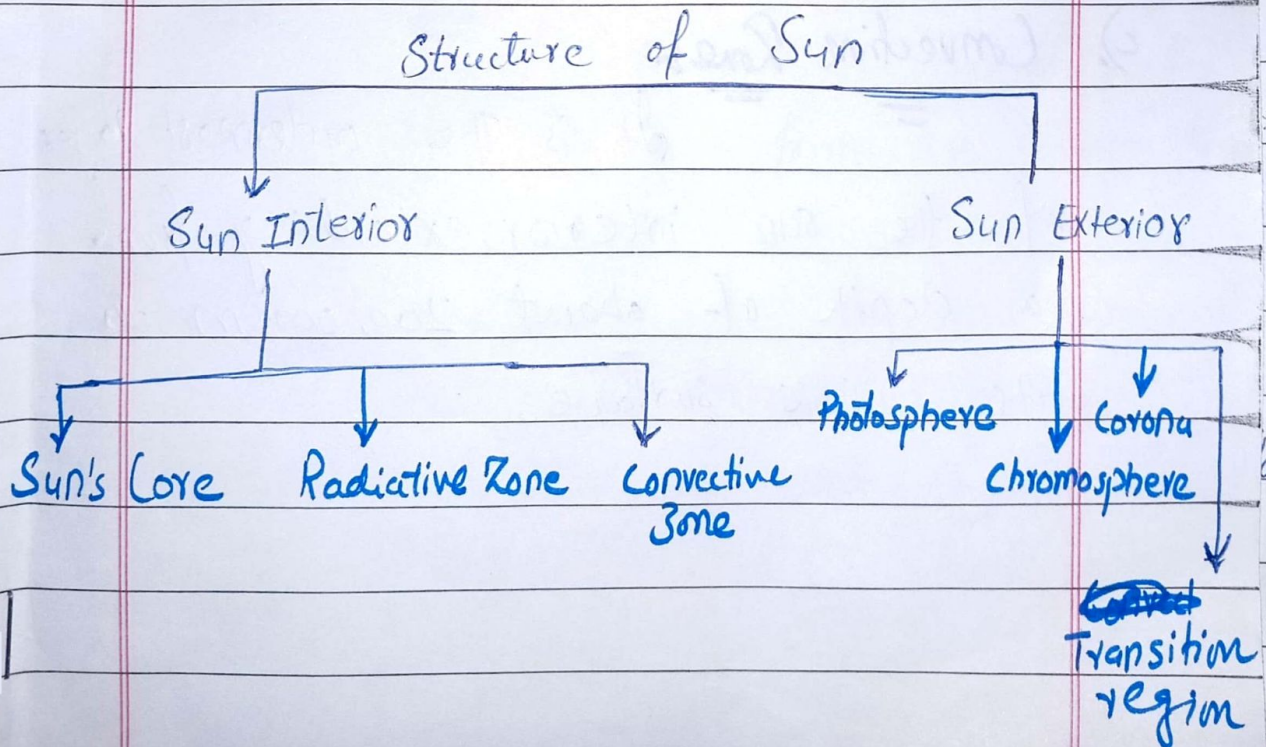 Structure of Sun
Sun Interior
Sun Exterior
Sun's Core
Radiative Zone
Convective
Zone
Photosphere
Corona
Chromosphere
Transition
region